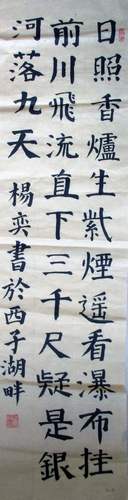 日照香爐生紫煙遙看瀑布挂
前川飛流直下三千尺疑是銀
河落九天
楊奕書於西子湖畔